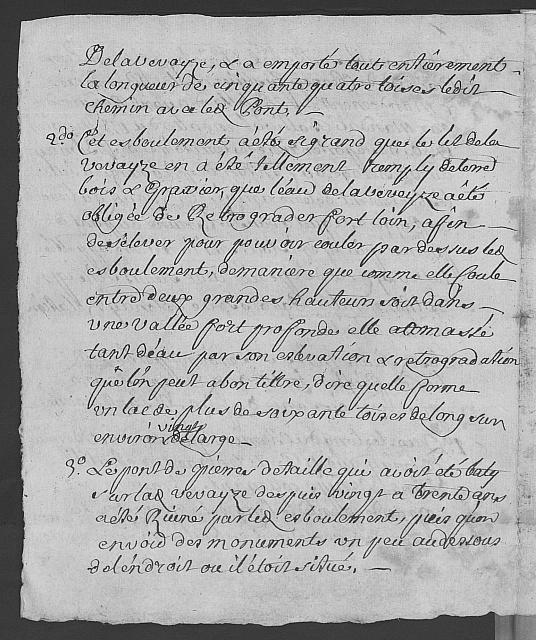 De la Vevayze, & a emporté tout entièrement
la longueur de cinquante quatre toises ledit
chemin avec led. Pont. —
2do. Cet esboulement a été si grand que le lit de la
vevayze en a été tellement remply de terre
bois & Gravier, que l'eau de la veveyze a été
obligée de Retrograder fort loin, affin
de s'élever pour pouvoir couler par dessus led.
esboulement, de maniere que comme elle coule
entre deux grandes hauteurs soit dans
une vallée fort profonde elle a amassé
tant d'eau par son eslevation & retrogradation
que lôn peut a bon tiltre, dire quelle forme
un lac de plus de soixante toises de long sur
environ vingt de large. —
3.° Le pont de pierres de taille qui avoit été baty
sur lad. vevayze despuis vingt a trente ans
a été Ruiné par led. esboulement, puis qu'on
en void des monuments un peu au dessous
de lendroit ou il étoit situé. —